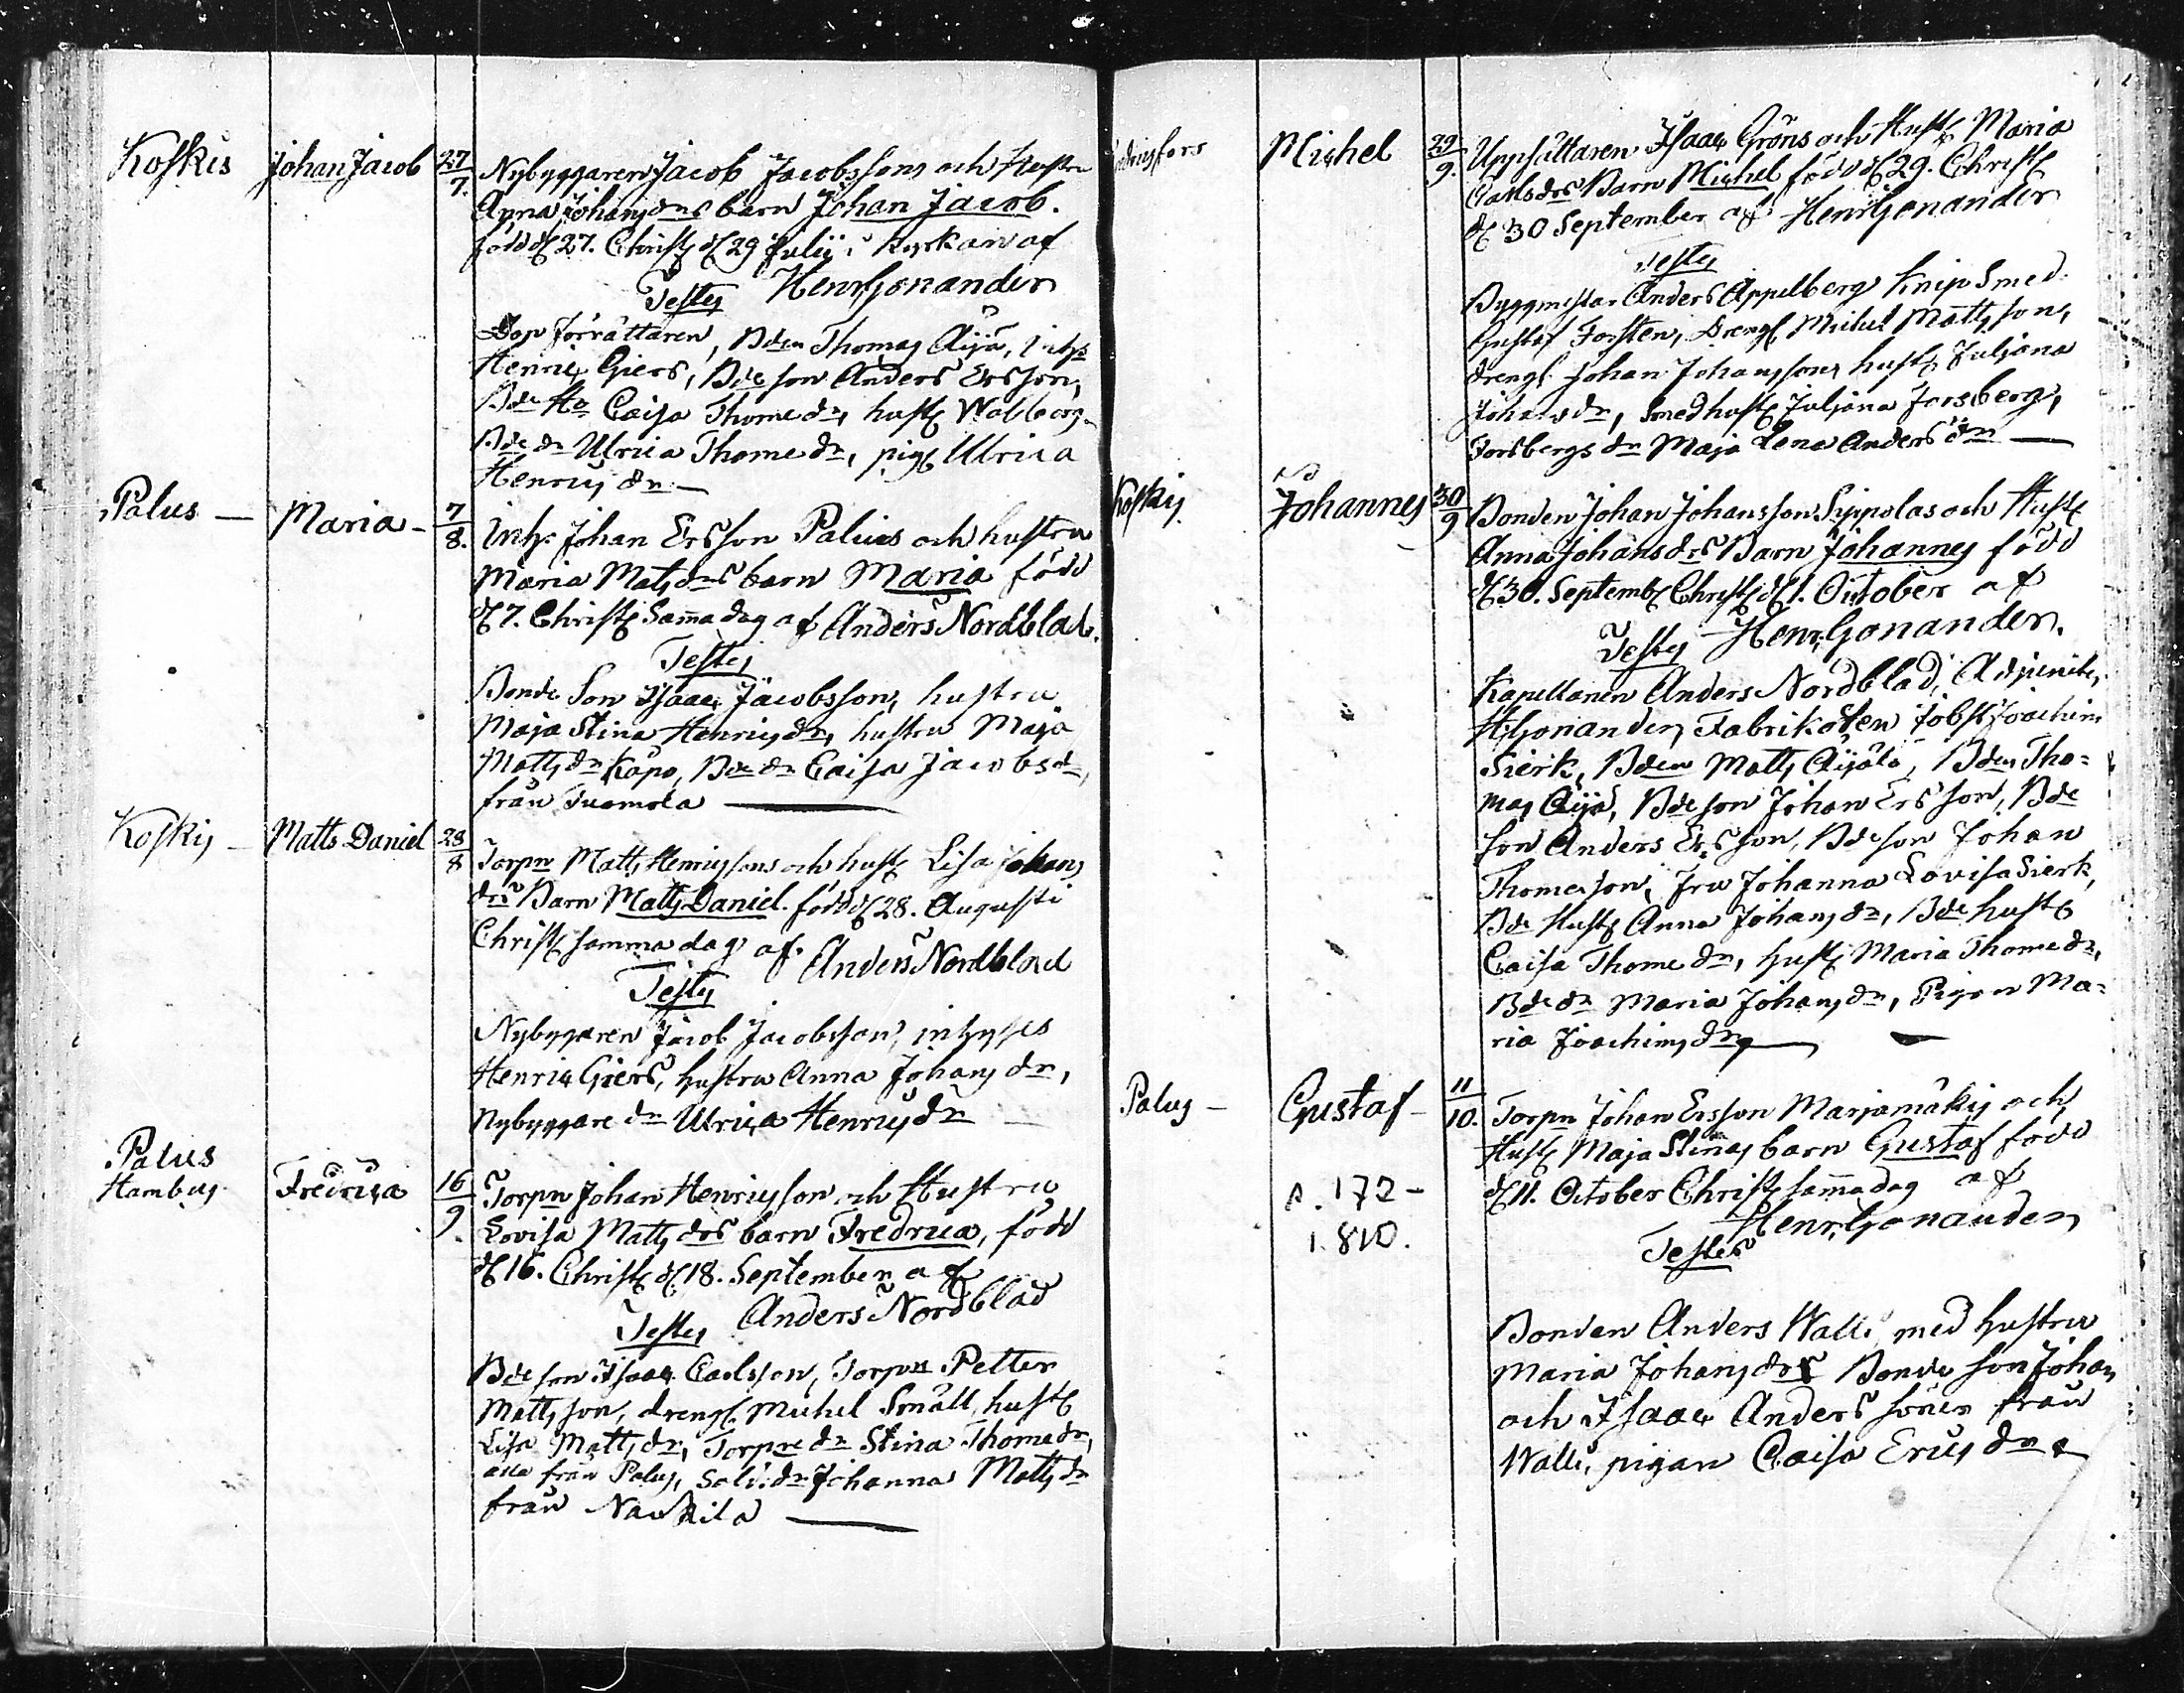 Koskis Johan Jacob 27/7. Nybyggaren Jacob Jacobssons och Hustru
Anna Johansdrs barn Johan Jacob.
född d 27. Christ d 29 Julii i Kyrkan af
Testes Henr Gonander
Dop förrättaren, Bden Thomas Äijä, inhs
Henric Giers, Bde son Anders Ersson,
Bde Ha Caisa Thomedr, hust Walborg
Bde dr Ulrica Thomedr, pig Ulrica
Henricsdr —
Palus — Maria — 7/8. Inhs Johan Ersson Palus och hustru
Maria Matsdrs barn Maria född
d 7. Christ Samma dag af Anders Nordblad.
Testes
Bonde Son Isaac Jacobsson, hustru
Maja Stina Henricsdr, hustru Maja
Mattsdr Käpo, Bde dr Caisa Jacobsdr,
från Tuomola —
Koskis — Matts Daniel 28/8 Torpn Matts Henricssons och hust Lisa Johans
drs Barn Matts Daniel. född d 28. Augusti
Christ samma dag af Anders Nordblad
Testes
Nybyggaren Jacob Jacobsson, inhyses
Henric Giers, hustru Anna Johansdr,
Nybyggare dr Ulrica Henricsdr
Palus
Hambus Fredrica 16/9. Torpn Johan Henricsson och Hustru
Lovisa Mattsdrs barn Fredrica, född
d 16. Christ d 18. September af
Testes Anders Nordblad
Bde son Isaac Carlsson, Torpn Petter
Mattsson, dreng Michel Smäll, hust
Lisa Mattsdr, Torpre dr Stina Thomedr,
alla från Palus, Sold. dr Johanna Mattsdr
från Nackila —
Michel 29/9. Uppsättaren Isaac Gröns och Hust Maria
Carlsdrs Barn Michel född d 29. Christ
d 30 September af Henr Gonander
Testes
Byggmestar Anders Appelberg Knipsmed
Gustaf Forsten, Dreng Michel Mattsson,
drengs Johan Johanssons hust Juliana
Johansdr, smedhust Juliana Forsberg,
Forsbergs dr Maja Lena Andersdr —
Koskis Johannes 30/9 Bonden Johan Johansson Sippolas och Hust
Anna Johansdrs Barn Johannes född
d 30. Septemb Christ d 1. October af
Testes Henr. Gonander.
Kapellanen Anders Nordblad, Adjuncten,
H Gonander, Fabrikoren Jobst Joachim
Sierk, Bden Matts Äijälä, Bden Tho=
mas Äijä, Bde son Johan Ersson, Bde
son Anders Ersson, Bde son Johan
Thomeson, Fru Johanna Lovisa Sierk,
Bde Hust Anna Johansdr, Bde hust
Caisa Thomedr, hust Maria Thomedr,
Bde dr Maria Johansdr, Pigan Ma=
ria Joachimsdr —
Palus — Gustaf — 11/10. Torpn Johan Ersson Marjamäkis och
Hust Maja Stinas barn Gustaf född
s. 172 — d 11. October Christ samma dag af
1.810. Henr. Gonander
Testes
Bonden Anders Walli med hustru
Maria Johansdrs Bonde son Johan
och Isaac Anders söner från
Walli, pigan Caisa Ericsdr